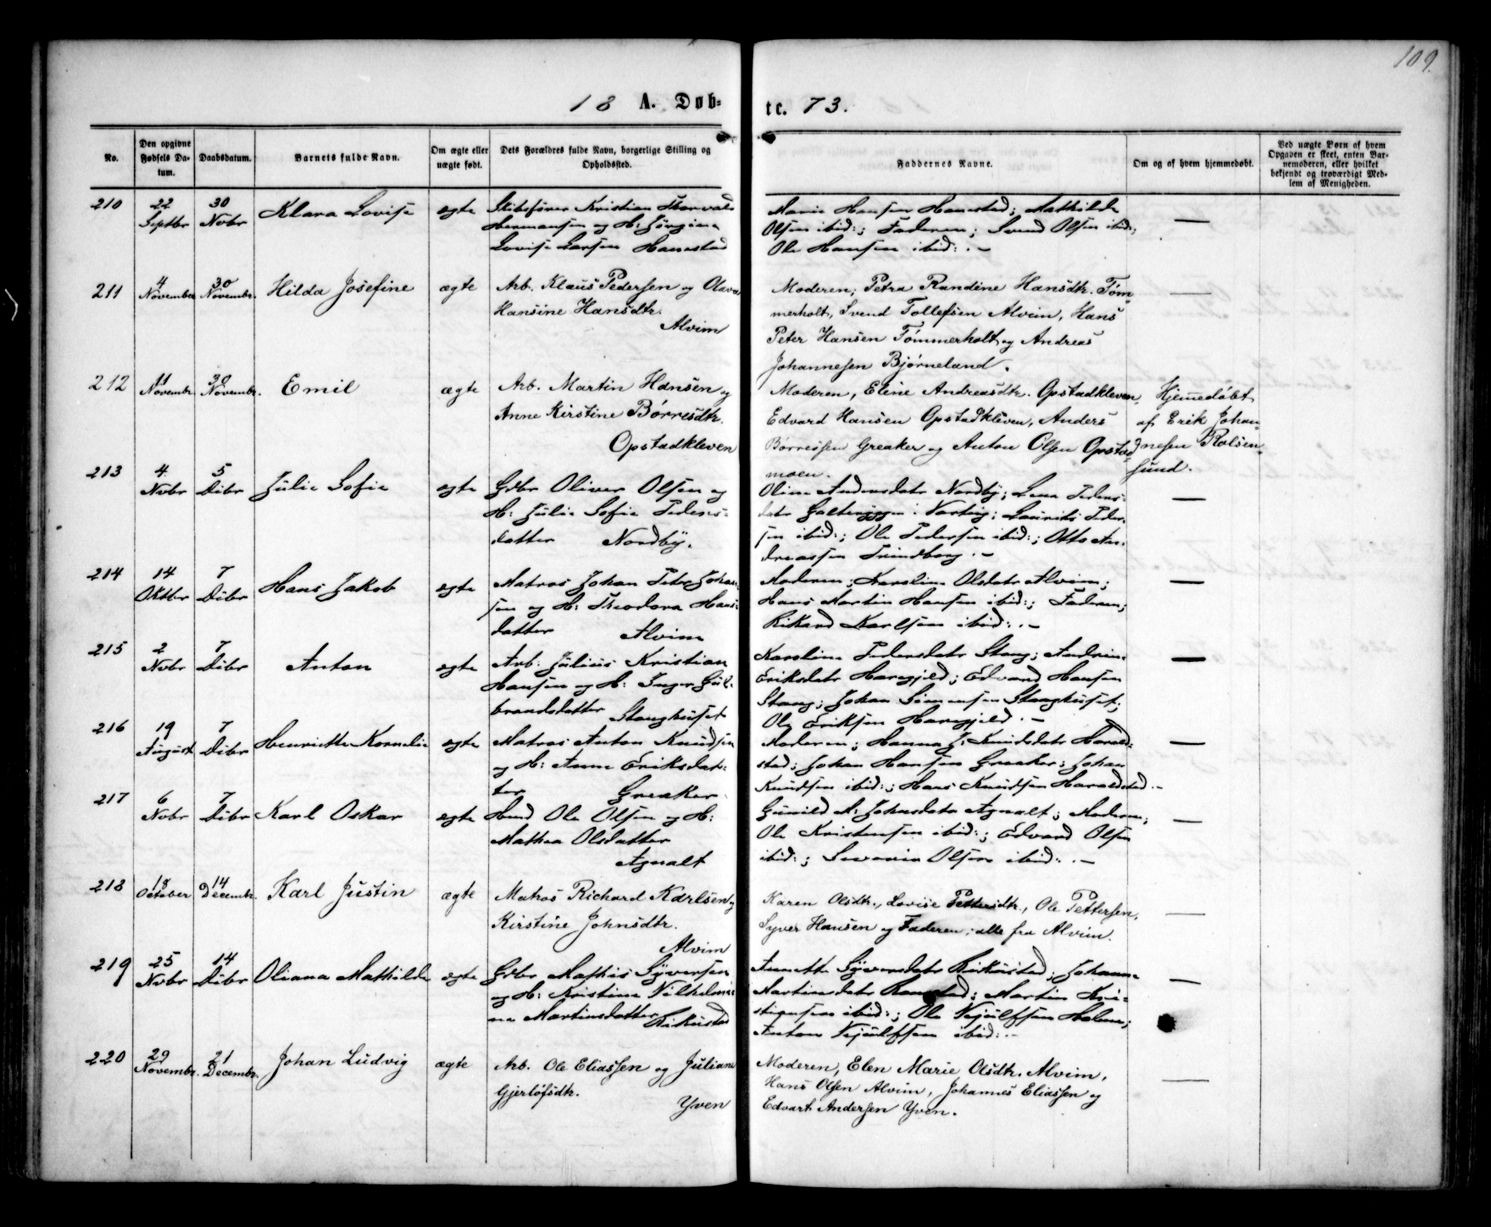 109.
18 A. Døb- te. 73.
No. | Den opgivne Fødsels Datum. | Daabsdatum. | Barnets fulde Navn. | Om ægte eller uægte født. | Dets Forældres fulde Navn, borgerlige Stilling og Opholdssted. | Faddernes Navne. | Om og af hvem hjemmedøbt. | Ved uægte Børn af hvem Opgaven er skeet, enten Barnemoderen, eller hvilket bekjendt og troværdigt Medlem af Menigheden.
210 22 Septbr 30 Novbr Klara Lovise ægte Kristian Thorvald
Hermansen og H: Jørgine
Lovise Larsen Hanestad
Marie Hansen Hanestad; Mathilde
Olsen ibid:; Faderen; Svend Olsen ibid:;
Ole Hansen ibid: . — —
211 4 November 30 Novembr. Hilda Josefine ægte Arb. Klaus Pedersen og Olava
Hansine Hansdtr.
Alvim
Moderen, Petra Randine Hansdtr. Tøm-
merholt, Svend Tollefsen Alvim, Hans
Peter Hansen Tømmerholt og Andreas
Johannesen Bjørneland. —
212 11 Novembr. 30 Novembr. Emil ægte Arb. Martin Hansen og
Anne Kirstine Børresdtr.
Opstadkleven
Moderen, Eline Andreasdtr. Opstadkleven,
Edvard Hansen Opstadkleven, Anders
Børresen Greaker og Anton Olsen Opstad-
moen.
Hjemedøbt
af Erik Johan-
nesen Rolsøn-
sund.
213 4 Novbr 5 Dibr Julie Sofie ægte Gdbr Oliver Olsen og
H: Julie Sofie Peders-
datter Nordby.
Oline Andersdatr Nordby; Lena Peders-
datr i Varteig; Laurits Peder-
sen ibid:; Ole Pedersen ibid:; Otto An-
dreassen . — —
214 14 Oktbr 7 Dibr Hans Jakob ægte Matros Johan Petr Johan-
sen og H: Theodora Hans-
datter Alvim
Moderen; Karoline Olsdatr Alvim;
Hans Martin Hansen ibid:; Faderen;
Rikard Karlsen ibid: . — —
215 2 Novbr 7 Dibr Anton ægte Arb: Julius Kristian
Hansen og H: Inger Gul-
brandsdatter Stanghuset
Karoline Pedersdatr Stang; Andrine
Eriksdatr Haregjeld; Edvard Hansen
Stang; Johan Simensen Stanghuset;
Ole Eriksen Haregjeld . — —
216 19 August 7 Dibr Henriette Kornelie ægte Matros Anton Knudsen
og H: Anne Eriksdat-
ter Greaker.
Moderen; Hanna J: Knudsdatr Harald-
stad; Johan Hansen Greaker; Johan
Knudsen ibid:; Hans Knudsen Haraldstad. — —
217 6 Novbr 7 Dibr Karl Oskar ægte Hmd Ole Olsen og H:
Mathea Olsdatter
Agnalt
Gunild M: Johnsdatr Agnalt; Moderen;
Ole Kristensen ibid:; Edvard Olsen
ibid:; Severin Olsen ibid: . — —
218 15 October 14 Decembr. Karl Justin ægte Matros Richard Karlsen og
Kirstine Johnsdtr.
Alvim
Karen Olsdtr., Lovise Pettersdtr., Ole Pettersen,
Syver Hansen og Faderen; alle fra Alvim. —
219 25 Novbr 14 Dibr Oliana Mathilde ægte Gdbr Mathis Syversen
og H: Kristine Vilhelmi-
ne Martinsdatter Rikustad
Annette Syversdatr Rikustad; Johanne
Martinsdatr; Martin Kri-
stiansen ibid:; Ole Kjølfsen;
Anton Kjølfsen ibid: . — —
220 29 Novembr. 21 Decembr. Johan Ludvig ægte Arb. Ole Eliassen og Juliane
Gjerløfsdtr.
Yven
Moderen, Elen Marie Olsdtr. Alvim,
Hans Olsen Alvim, Johannes Eliassen og
Edvart Andersen Yven. —